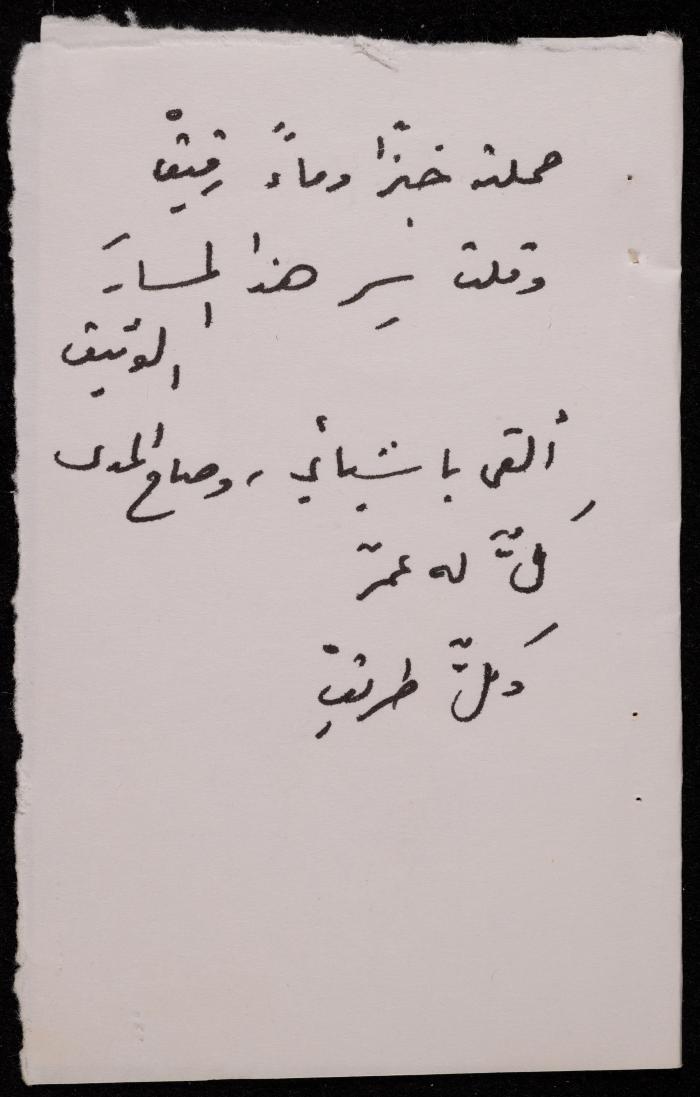 حملته خبزًا وماءً قيتْ
وقلت سِر هذا المسارَ
الوثيق
ألقى بأشيائي، وصاح المدى
كلٌّ له عمرٌ
وكلٌّ طريقْ